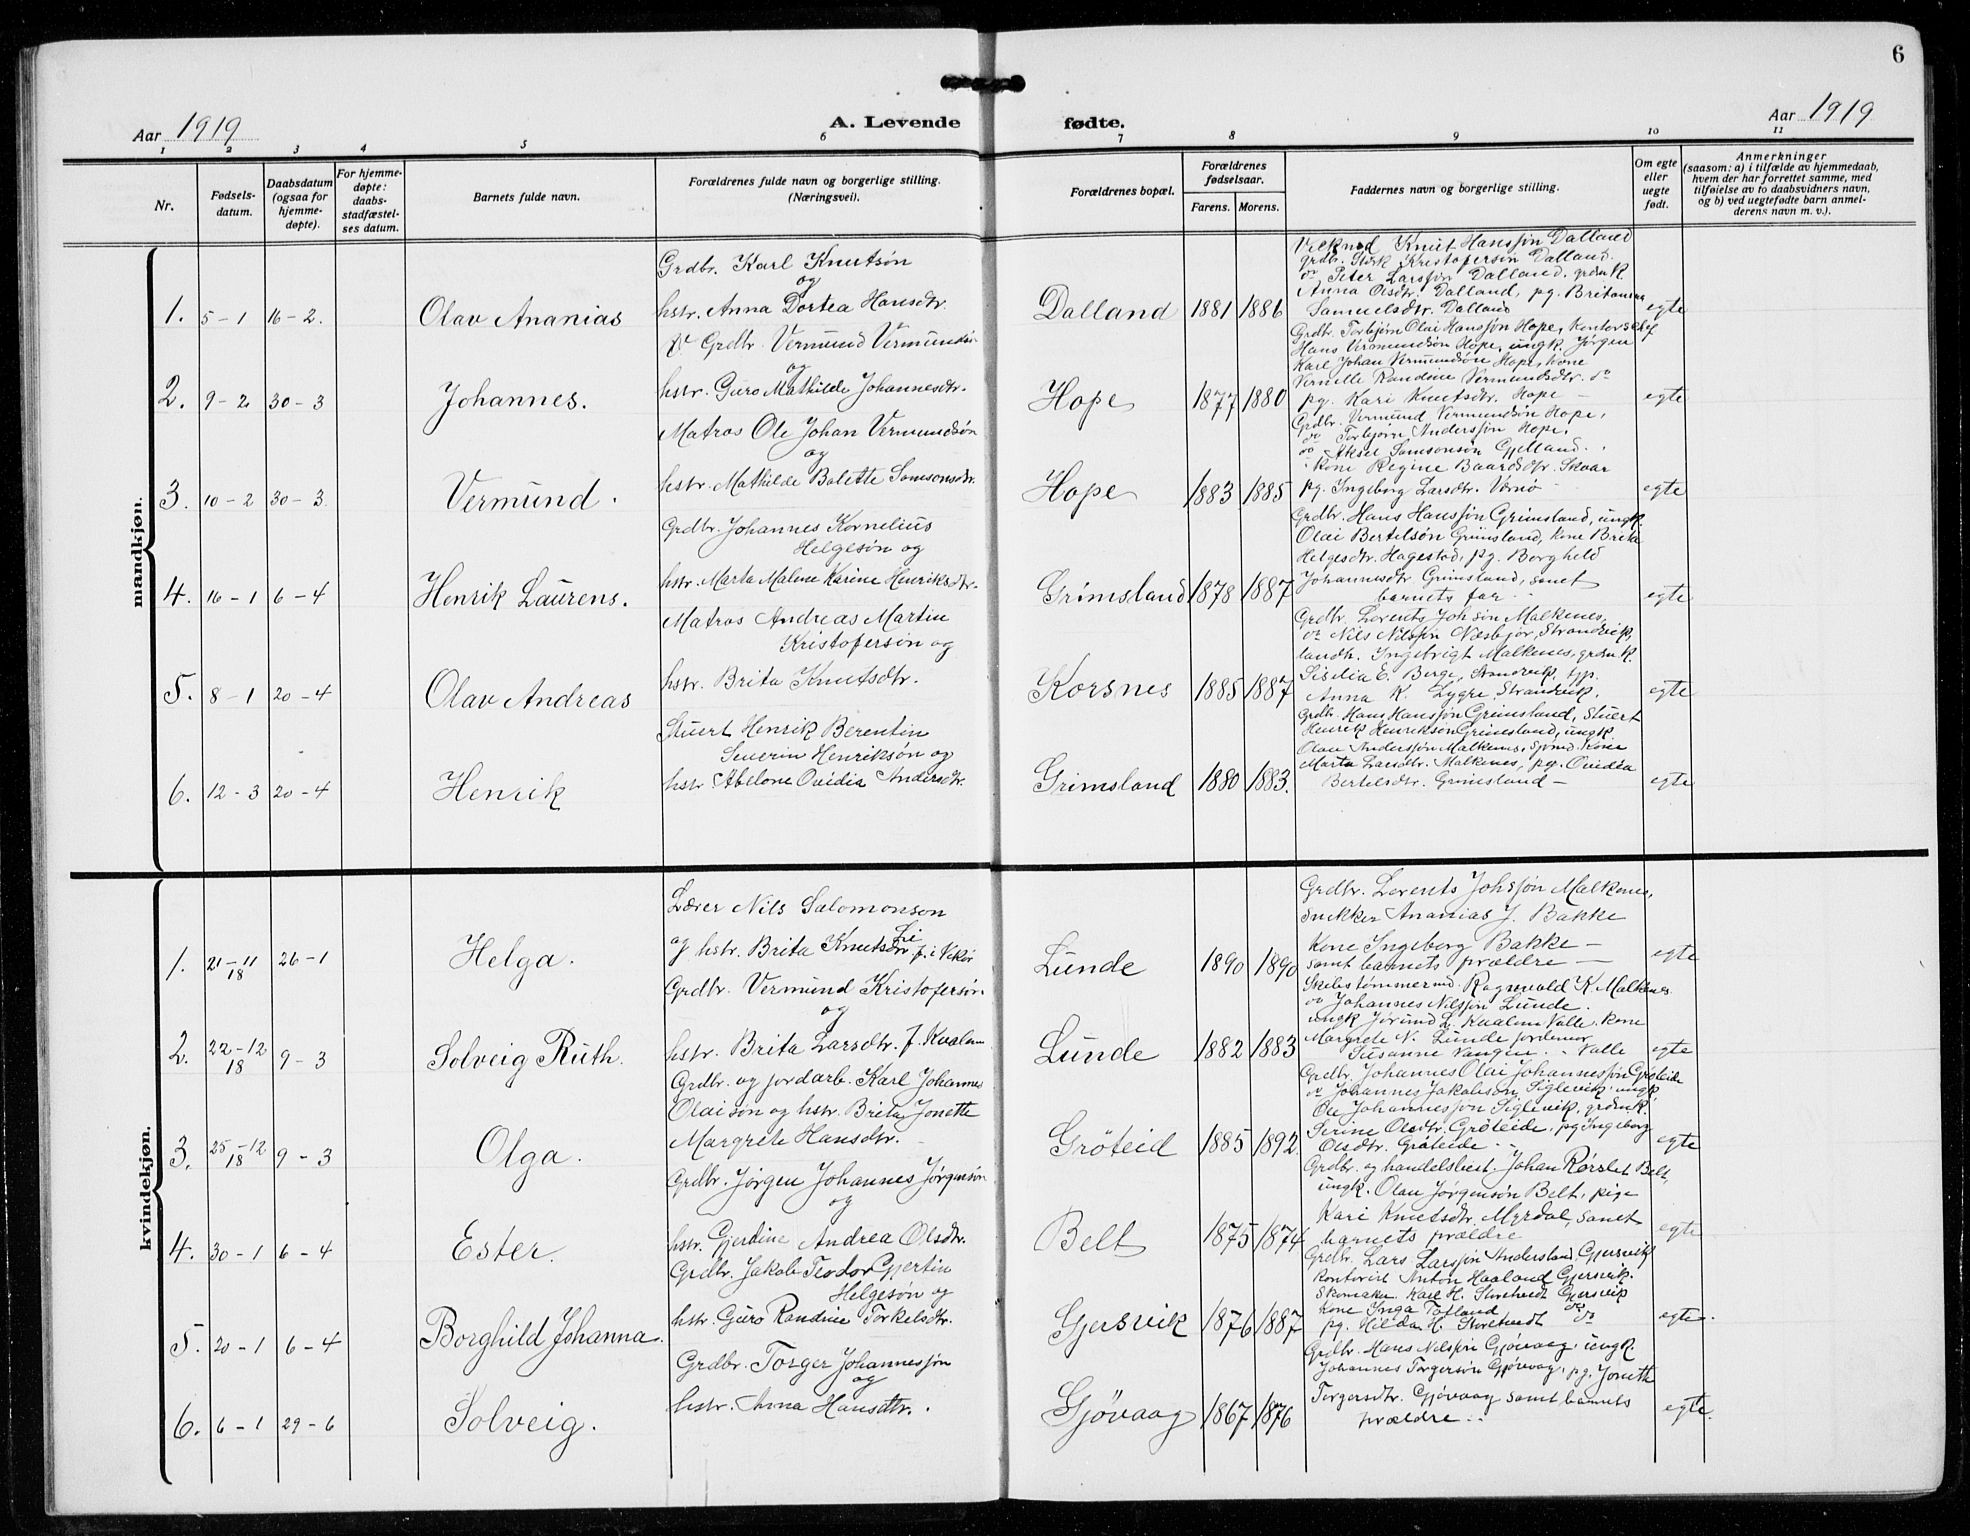 6
Aar 1919
A. Levende fødte.
Aar 1919
1 2 3 4 5 6 7 8 9 10 11
Nr.
Fødsels-
datum.
Daabsdatum
(ogsaa for
hjemme-
døpte).
For hjemme-
døpte:
daabs-
stadfæstel-
ses datum.
Barnets fulde navn.
Forældrenes fulde navn og borgerlige stilling.
(Næringsvei).
Forældrenes bopæl.
Forældrenes
fødselsaar.
Farens. Morens.
Faddernes navn og borgerlige stilling.
Om egte
eller
uegte
født.
Anmerkninger
(saasom: a) i tilfælde av hjemmedaab,
hvem der har forrettet samme, med
tilføielse av to daabsvidners navn,
og b) ved uegtefødte barn anmel-
derens navn m. v.).
mandkjøn.
1. 5-1 16-2. Olav Ananias
Grdbr. Karl Knutsön
og
hstr. Anna Dortea Hansdtr.
Dalland 1881 1886
Knut Hanssjön Dalland
grdbr. Kristofersön Dalland.
do Peter Larssön Dalland, grdmk
Anna Olsdtr. Dalland, pg.
Samuelsdtr. Dalland
egte
2. 9-2 30-3 Johannes.
Grdbr. Vermund Vermundsön
og
hstr. Guro Mathilde Johannesdtr.
Hope 1877 1880
Grdbr. Torbjørn Olai Hanssjön Hope, Kontorschef
Hans Vermundsön Hope, ungk. Jørgen
Karl Johan Vermundsön Hope, kone
Randine Vermundsdtr. do
pg. Kari Knutsdtr. Hope –
egte
3. 10-2 30-3. Vermund.
Matros Ole Johan Vermundsön
og
hstr. Mathilde Bolette Samsonsdtr.
Hope 1883 1885
Grdbr. Vermund Vermundsön Hope,
do Torbjörn Anderssjön Hope,
do Aksel Samsonsön Gjelland.
kone Regine Baardsdtr. Skaar
pg. Ingeborg Larsdtr.
egte
4. 16-1 6-4 Henrik Laurens.
Grdbr. Johannes Kornelius
Helgesön og
hstr. Marta Malene Karine Henriksdtr.
Grimsland 1878 1887
Grdbr. Hans Hanssjön Grimsland, ungk.
Olai Bertelsön Grimsland, kone Brita
Helgesdtr. Hagestad, pg. Borghild
Johannesdtr. Grimsland, samt
barnets far.
egte
5. 8-1 20-4 Olav Andreas
Matros Andreas Martin
Kristofersön og
hstr. Brita Knutsdtr.
Korsnes 1885 1887
Grdbr. Lorents Johsön Malkenes,
do Nils Nilssjön Næsbjør, Strandvik,
landh. Ingebrigt Malkenes, grdmk.
Sisilia E. Berge, Strandvik,
Anna K. Lygre, Strandvik.
egte
6. 12-3 20-4 Henrik
Stuert Henrik Berentin
Severin Henriksön og
hstr Abelone Ovidia Andersdtr.
Grimsland 1880 1883.
Grdbr. Hans Hanssjön Grimsland, Stuert
Henrik Henriksön Grimsland, ungk.
Olav Anderssjön Malkenes, kone
Marta Larsdtr. Malkenes, pg. Ovidia
Bertelsdtr. Grimsland –
egte
kvindekjøn.
1. 21-11/18 26-1 Helga.
Lærer Nils Salomonson
Li
og hstr. Brita Knutsdtr f. i Vikör
Lunde 1890 1890
Grdbr. Lorents Johssjön Malkenes,
snekker Ananias J. Bakke
Kone Ingeborg Bakke –
samt barnets forældre –
egte
2. 22-12/18 9-3 Solveig Ruth.
Grdbr. Vermund Kristofersön
og
hstr. Brita Larsdtr. f. Kvalem
Lunde 1882 1883
Skibstømmermd. Ragnvald K. Malkenes
do Johannes Nilssjön Lunde.
ungk Jørund L. Kvalem Valle. kone
Margrete N. Lunde jordemor
Susanne Vangen Valle
egte
3. 25-12/18 9-3 Olga.
Grdbr. og jordarb. Karl Johannes
Olaisön og hstr. Brita Jonette
Margrete Hansdtr.
Gröteid 1885 1892.
Grdbr. Johannes Olai Johannessjön Gröteide
do Johannes Jakobson Siglevik, ungk.
Ole Johannessjön Siglevik, grdmk.
Serine Olsdtr. Gröteide, pg Ingeborg
Olsdtr. Gröteide
egte
4. 30-1 6-4 Ester.
Grdbr. Jörgen Johannes Jörgensön
og
hstr. Gjerdine Andrea Olsdtr.
Belt 1875 1874
Grdbr. og handelsbest. Johan Rørslet Belt,
ungk. Olav Jørgensön Belt, pige
Kari Knutsdtr. Myrdal, samt
barnets forældre
egte
5. 20-1 6-4 Borghild Johanna.
Grdbr. Jakob Teodor Gjertin
Helgesön og
hstr. Guro Randine Torkelsdtr.
Gjersvik 1876 1887
Grdbr. Lars Larssjön Andersland, Gjersvik
Kontorist Anton Haaland Gjersvik.
Skomaker Karl H. Gjersvik
Kone Inga Tofland do
pg. Hilda H. do
egte.
6. 6-1 29-6 Solveig.
Grdbr. Torger Johannessjön
og
hstr. Anna Hansdtr.
Gjövaag 1867 1876
Grdbr. Hans Nilssjön Gjövaag, ungk.
Johannes Torgersön Gjövaag, pg. Joneth
Torgersdtr. Gjövaag samt barnets
forældre
egte.